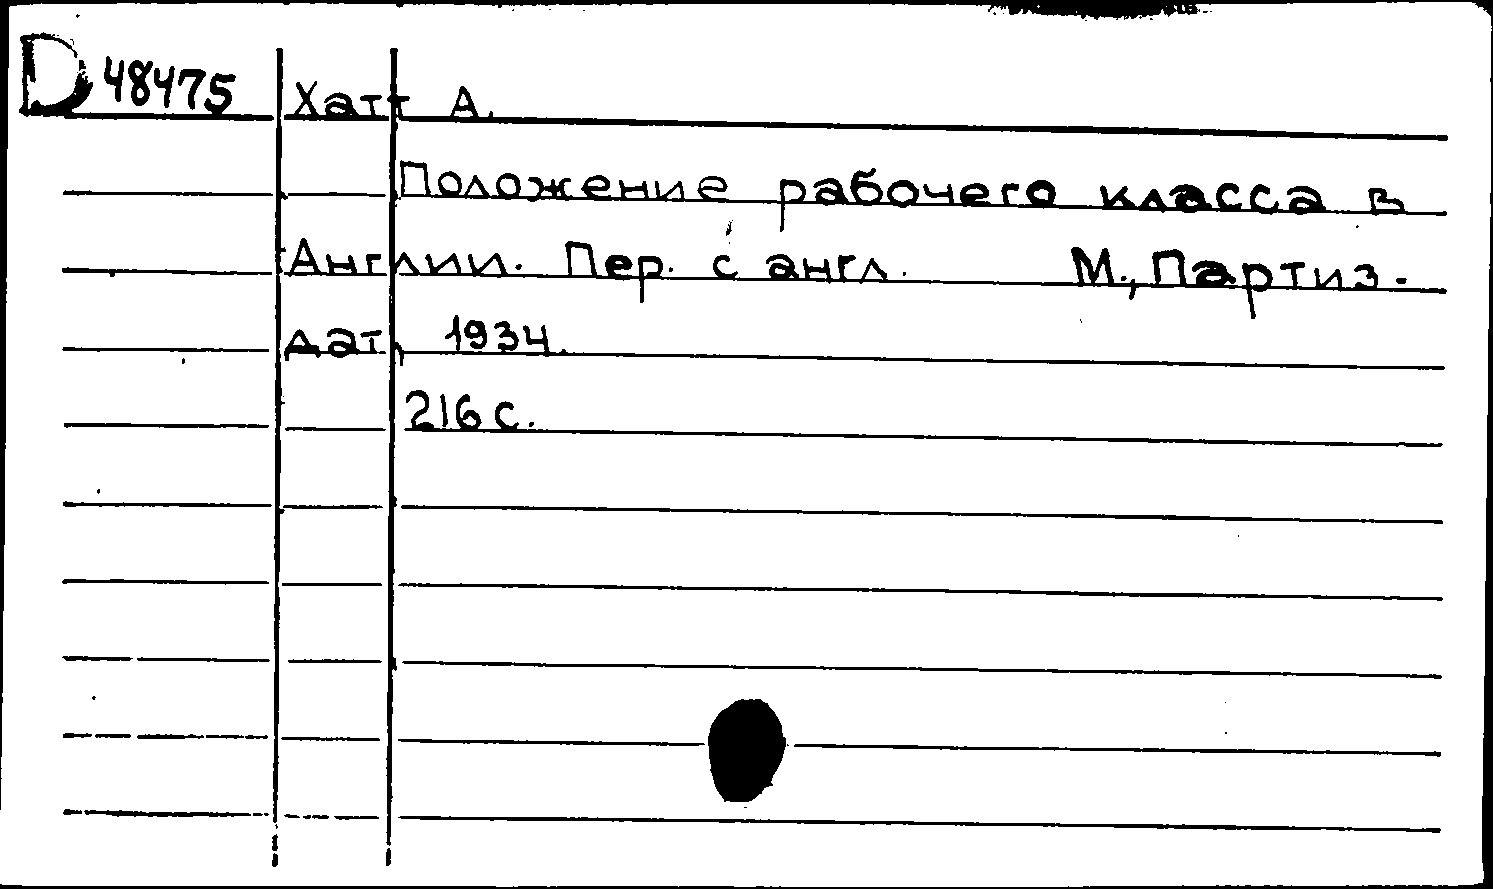 D 48475 Хатт А.
Положение рабочего класса в
Англии. Пер. с англ. М., Партиз-
дат, 1934.
216 с.